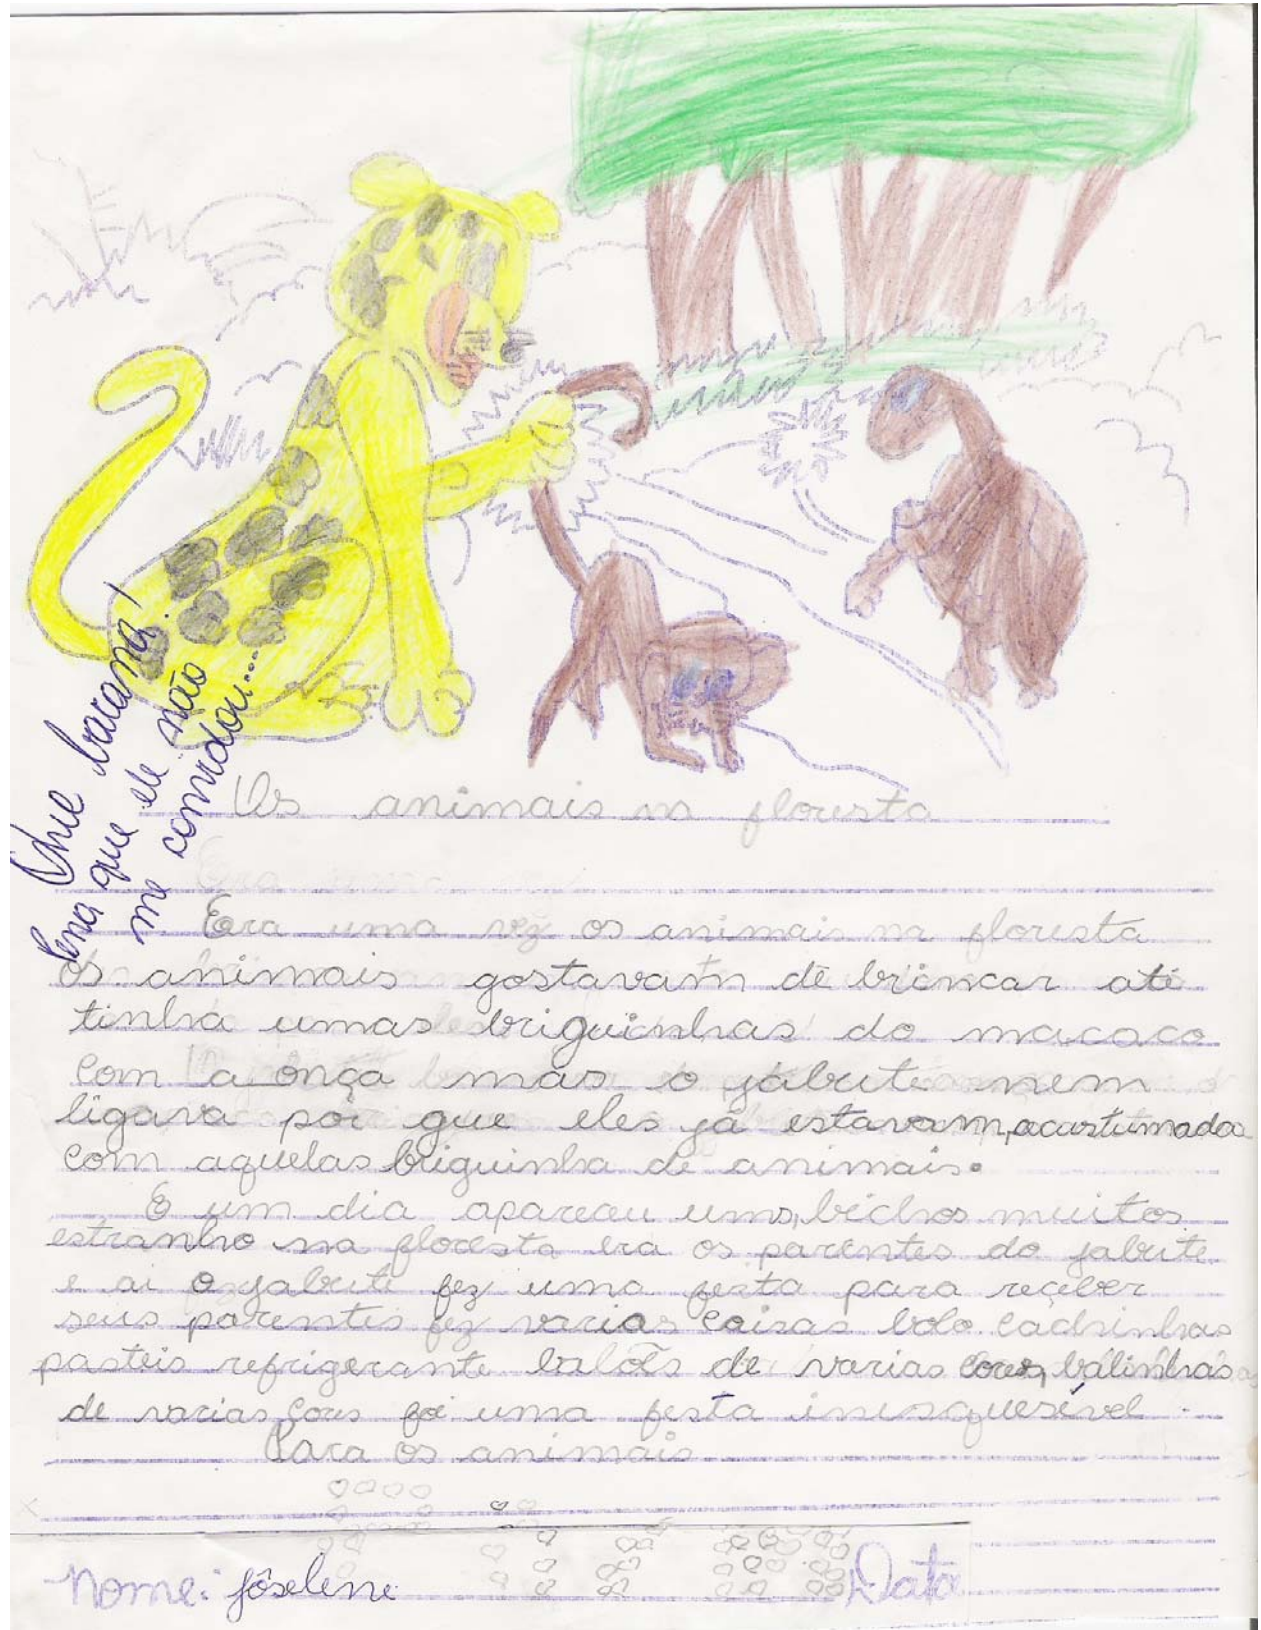 Que bacana!
Pena que ele não
me convidou...
Os animais na floresta
Era uma vez os animais na floresta
os animais gostavam de brincar até
tinha umas briguinhas do macaco
com a onça mas o jabute nem
ligava por que eles já estavam acustumados
com aquelas briguinha de animais.
E um dia apareceu ums bichos muitos
estranho na floresta era os parentes do jabute
e ai o jabuti fez uma festa para reçeber
seus parentes fez varias coisas bolo cachinhas
pasteis refrigerante balões de varias cores, balinhas
de varias cores foi uma festa inesquesível
Para os animais
Nome: Joselene Data